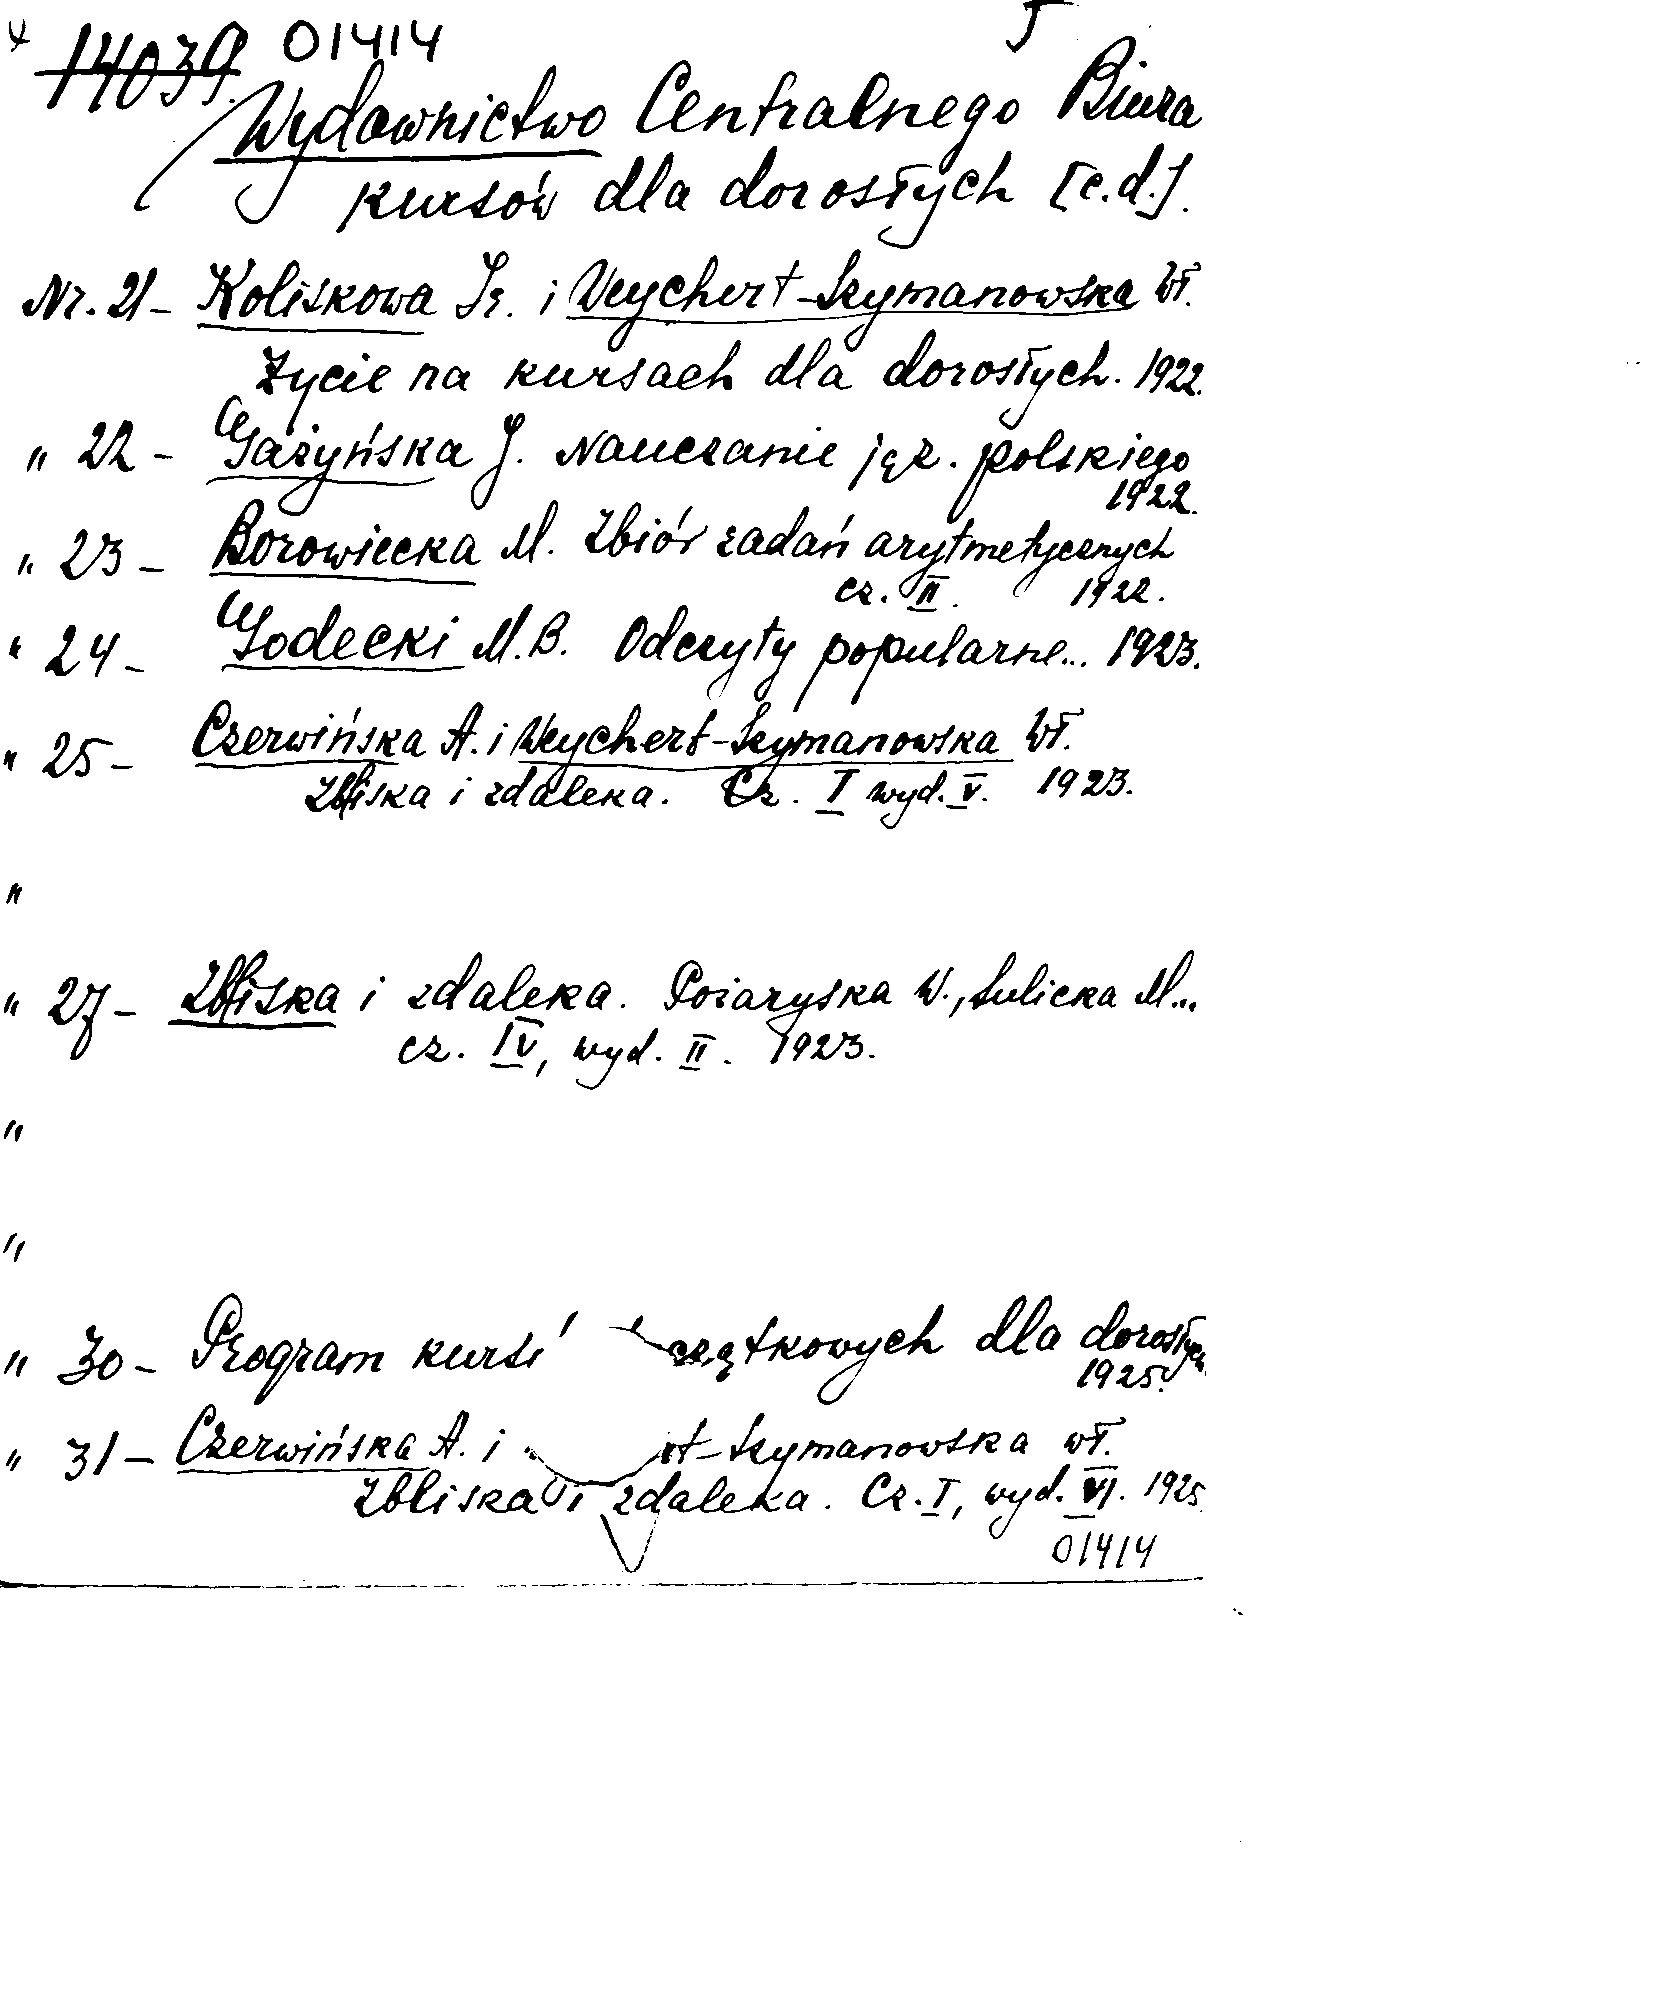 14039 01414 J
Wydawnictwo Centralnego Biura
kursów dla dorosłych [c.d.].
Nr. 21 - Koliskowa Ir. i Weychert-Szymanowska Wł.
Życie na kursach dla dorosłych. 1922.
" 22 - Gażyńska J. Nauczanie jęz. polskiego
1922.
" 23 - Borowiecka M. Zbiór zadań arytmetycznych
cz. II. 1922.
" 24 - Godecki M.B. Odczyty popularne... 1923.
" 25 - Czerwińska A. i Weychert-Szymanowska Wł.
Zbliska i zdaleka. Cz. I wyd. V. 1923.
"
" 27 - Zbliska i zdaleka. Pożaryska W., Sulicka M...
cz. IV, wyd. II. 1923.
"
"
" 30 - Program kurs czątkowych dla dorosłych
1925.
" 31 - Czerwińska A. i rt-Szymanowska Wł.
Zbliska i zdaleka. Cz. I, wyd. VI. 1925
01414